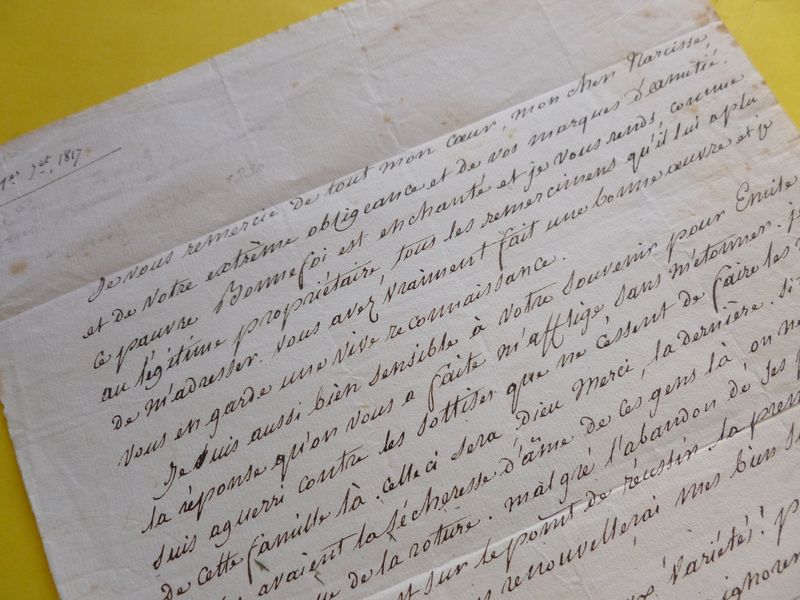 1er 7et 1817.
Je vous remercie de tout mon cœur, mon cher Narcisse,
et de votre extrême obligeance et de vos marques d'amitié.
ce pauvre Bonnefoi est enchanté et je vous rends, comme
au légitime propriétaire, tous les remercimens qu'il lui a plu
de m'adresser. vous avez vraiment fait une bonne œuvre et je
vous en garde une vive reconnaissance.
Je suis aussi bien sensible à votre souvenir pour Emile
la réponse qu'on vous a faite m'afflige sans m'étonner. je
suis aguerri contre les sottises que ne cessent de faire les
de cette famille là. celle ci sera, Dieu merci, la dernière. si
avaient la sécheresse d'âme de ces gens là, on ne
de la roture. malgré l'abandon de ses
est sur le point de réussir. la
renouvellerai mes bien
Variétés!
ignorent